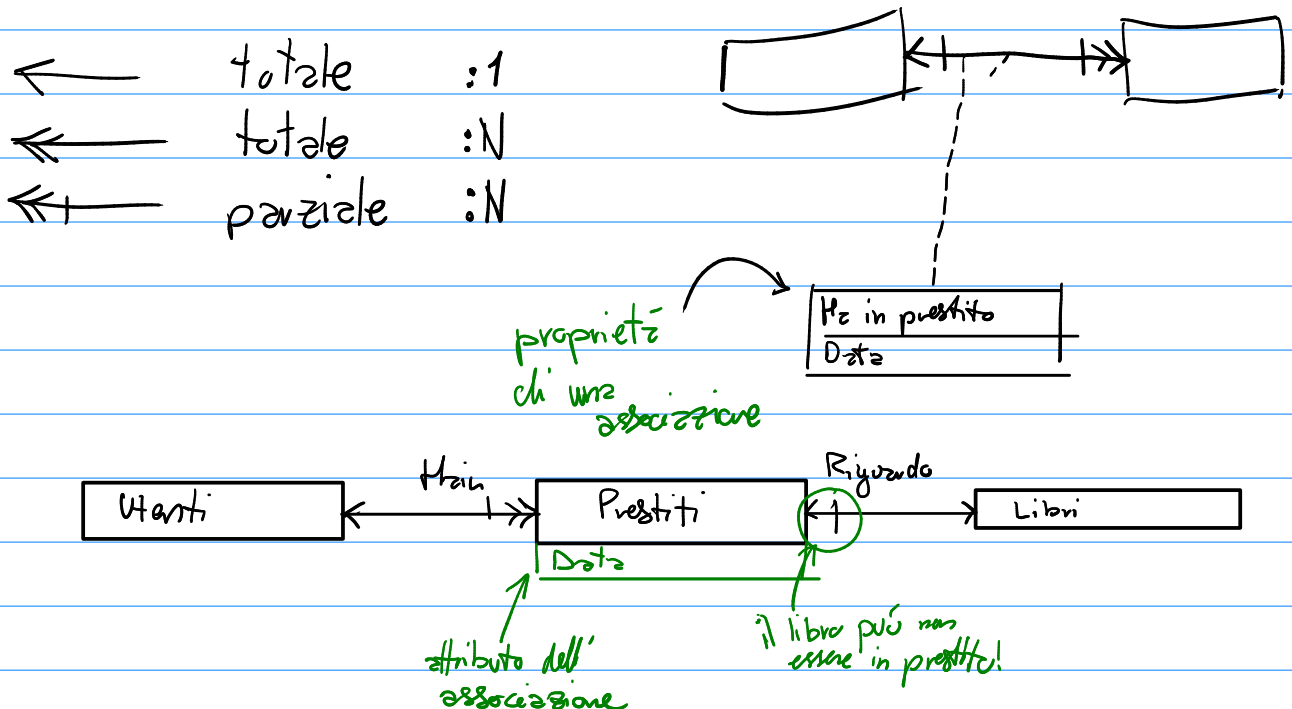 totale :1
totale :N
parziale :N
Ha in prestito
Data
proprietà
di una
associazione
Ha in
Riguarda
Utenti
Prestiti
Libri
Data
attributo dell'
associazione
il libro può non
essere in prestito!